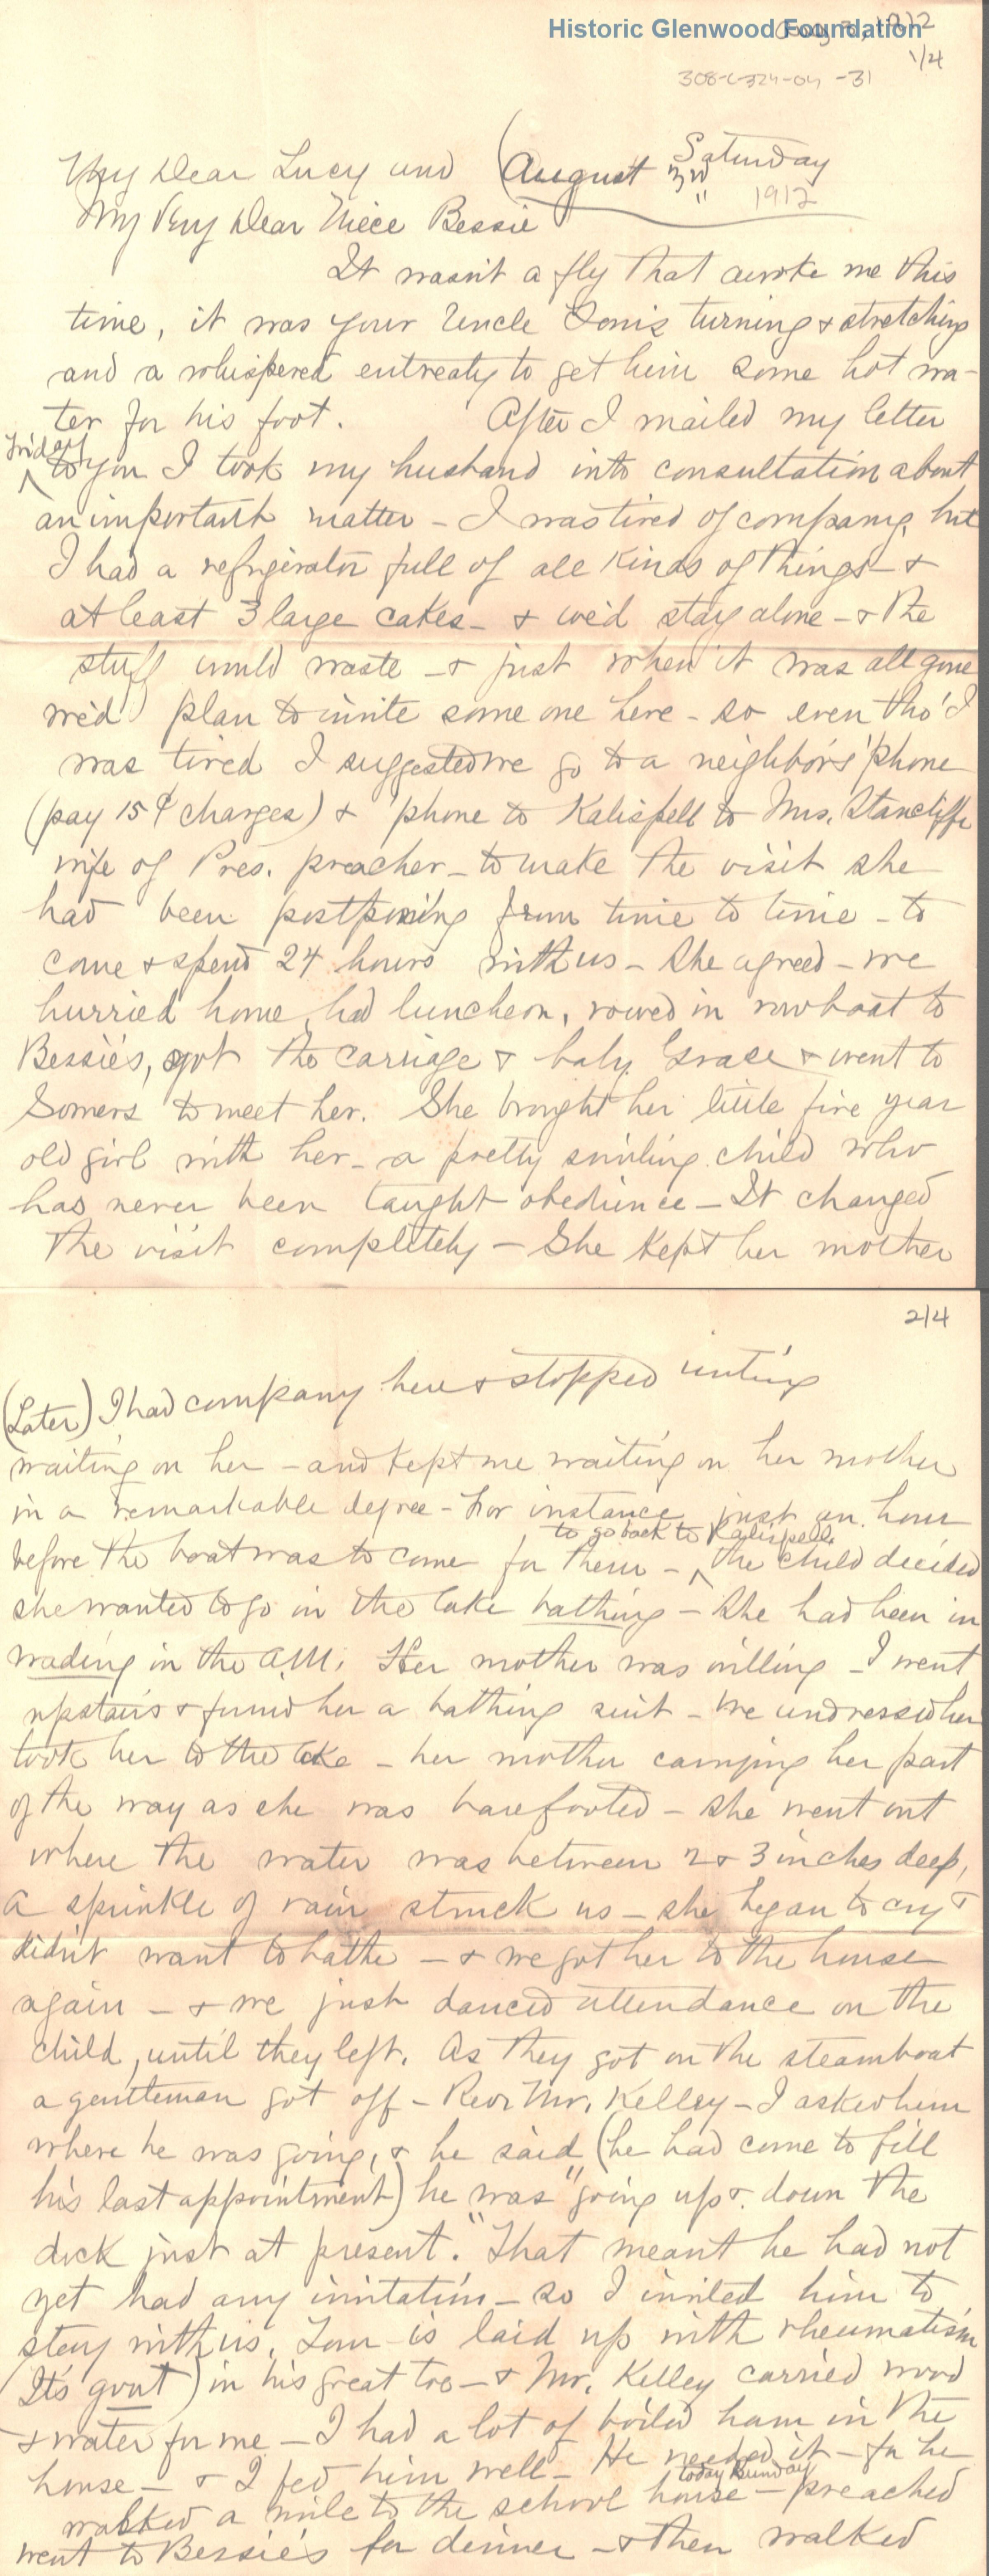 Historic Glenwood Foundation
1912
1/4
308-C-324-04-31
My Dear Lucy and (August 3rd Saturday
1912
My Very Dear Niece Bessie
It wasn't a fly that awoke me this
time, it was your Uncle Louis turning & stretching
and a whispered entreaty to get him some hot wa-
ter for his foot. After I mailed my letter
Friday
to you I took my husband into consultation about
an important matter - I was tired of company, but
I had a refrigerator full of all kinds of things - &
at least 3 large cakes - & we'd stay alone - & the
stuff would waste - & just when it was all gone
we'd plan to invite some one here - so even tho' I
was tired I suggested we go to a neighbor's 'phone
(pay 15¢ charges) & 'phone to Kalispell to Mrs. Stancliffe
wife of Pres. preacher - to make the visit she
had been postponing from time to time - to
come & spend 24 hours with us - She agreed - we
hurried home, had luncheon, rowed in rowboat to
Bessie's, got the carriage & baby Grace & went to
Somers to meet her. She brought her little five year
old girl with her - a pretty smiling child who
has never been taught obedience - It changed
the visit completely - She kept her mother
2/4
(Later) I had company here & stopped writing
waiting on her - and kept me waiting on her mother
in a remarkable degree - For instance just an hour
to go back to Kalispell
before the boat was to come for them - the child decided
she wanted to go in the lake bathing - She had been in
wading in the A.M. Her mother was willing - I went
upstairs & found her a bathing suit - We undressed her
took her to the lake - her mother carrying her part
of the way as she was barefooted - She went out
where the water was between 2 & 3 inches deep,
a sprinkle of rain struck us - she began to cry &
didn't want to bathe - & we got her to the house
again - & we just danced attendance on the
child, until they left. As they got on the steamboat
a gentleman got off - Rev. Mr. Kelley - I asked him
where he was going, & he said (he had come to fill
his last appointment) he was "going up & down the
dock just at present." That meant he had not
yet had any invitation - so I invited him to
stay with us. Lou is laid up with rheumatism
(It's gout) in his great toe - & Mr. Kelley carried wood
& water for me - I had a lot of boiled ham in the
house - & I fed him well - He needed it - for he
today Sunday
walked a mile to the school house - preached
went to Bessie's for dinner - & then walked